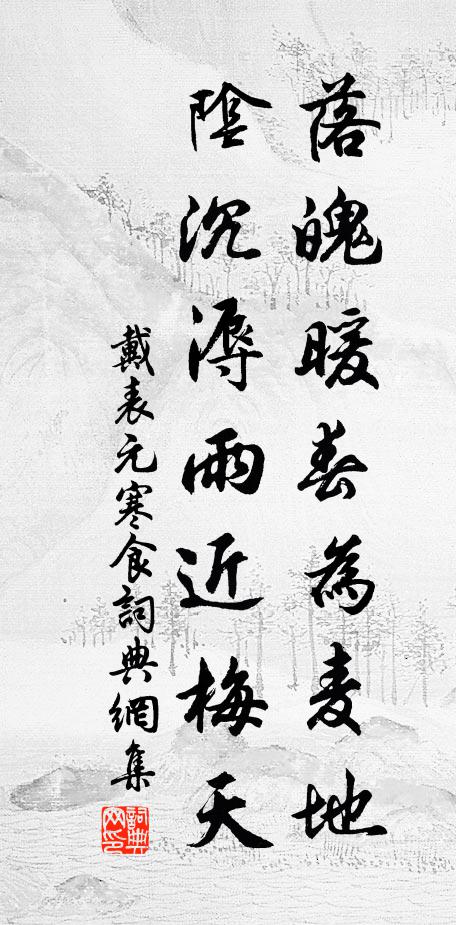 落魄暖春為麦地
陰沉溽雨近梅天
戴表元寒食詞典網集
詞典
网印